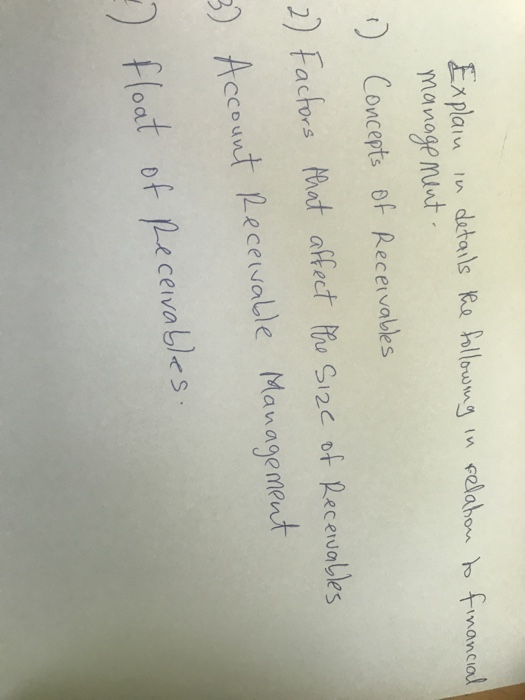 Explain in details the following in relation to financial
management.
1) Concepts of Receivables
2) Factors that affect the Size of Receivables
3) Account Receivable Management
) float of Receivables.